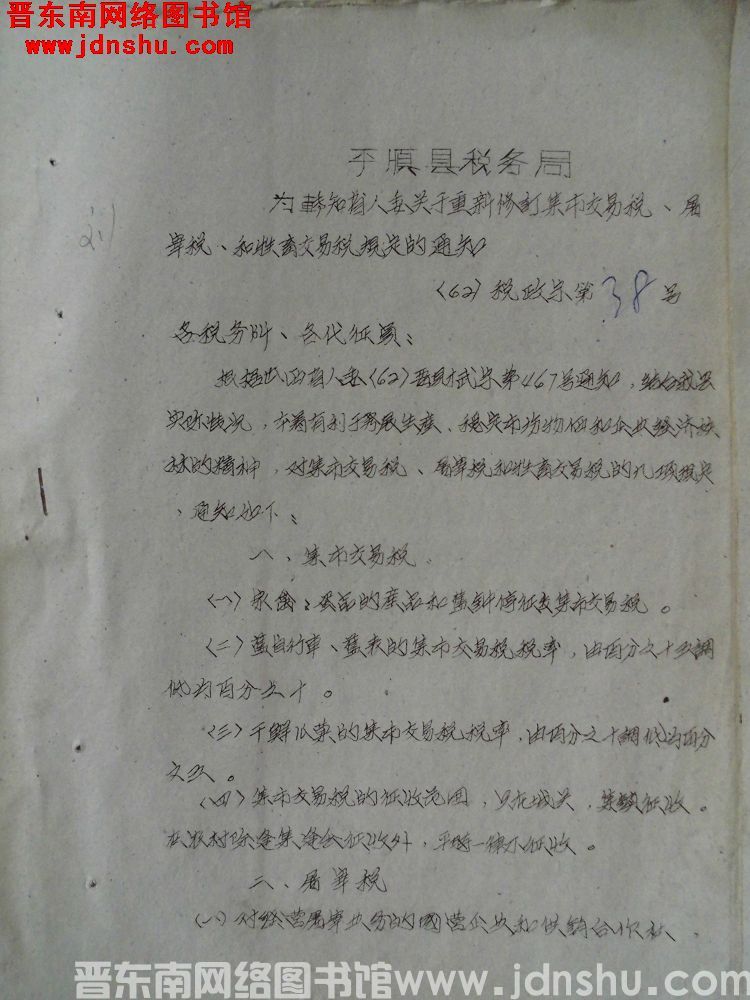 晋东南网络图书馆
www.jdnshu.com
平順县税务局
为轉知省人委关于重新修訂集市交易税、屠
宰税、和牲畜交易税規定的通知
（62）税政宗第38号
各税务所、各代征員：
根据山西省人委（62）晋財武宗第467号通知，結合我县
实际情况，本着有利于发展生産、穩定市场物价和企业經济核
标的精神，对集市交易税、屠宰税和牲畜交易税的几項規定
、通知如下：
一、集市交易税
（一）家禽、蛋品的産品和旧針停征集市交易税。
（二）旧自行車、旧表的集市交易税税率，由百分之十五調
低为百分之十。
（三）干鮮瓜菜的集市交易税税率，由百分之十調低为百分
之五。
（四）集市交易税的征收范围，只在城关、集鎮征收。
在农村除逢集逢会征收外，平时一律不征收。
二、屠宰税
（一）对經营屠宰业务的国营企业和供銷合作社、
晋东南网络图书馆 www.jdnshu.com